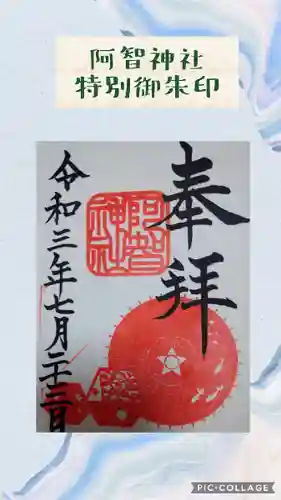 阿智神社
特別御朱印
奉拝
阿智神社
令和三年七月二十三日
PIC•COLLAGE